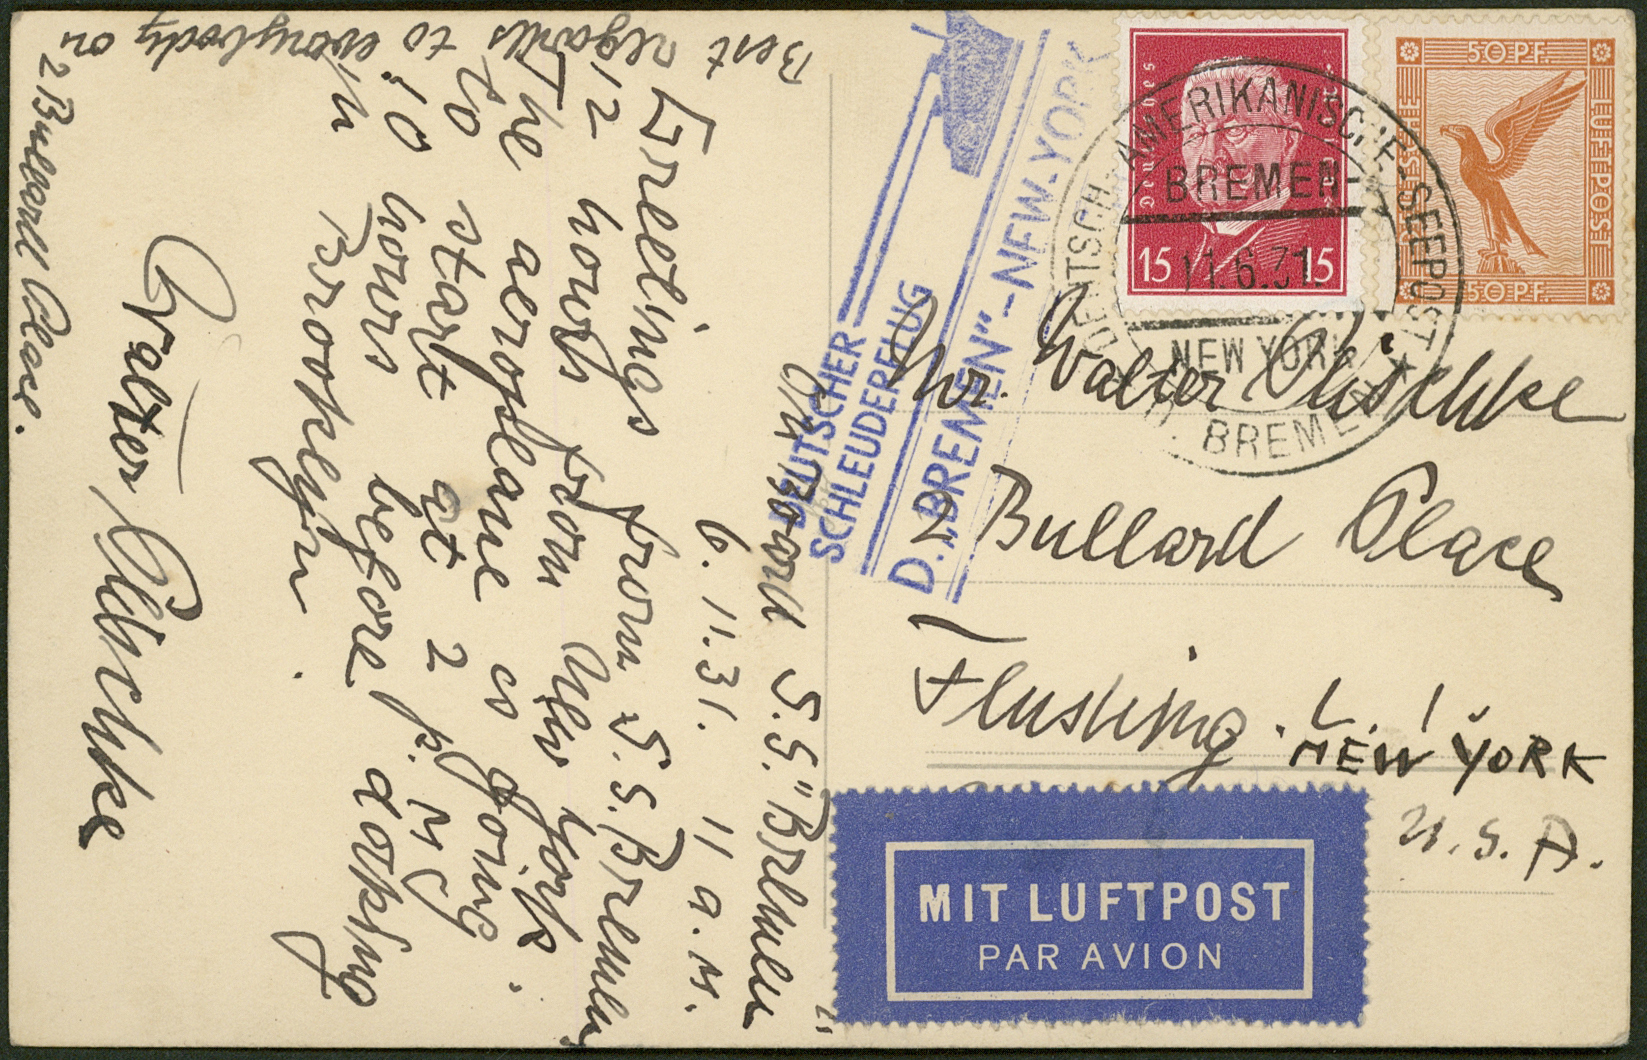 On Board S.S. "Bremen"
6. 11. 31. 11 a. M.
Greetings from S.S. Bremen
12 hours from New York.
The aeroplane is going
to start at 2 p. M
10 hours before docking
in Brooklyn.
Walter Plischke
Best regards to everybody on
2 Bullard Place.
DEUTSCHER
SCHLEUDERFLUG
D. „BREMEN“-NEW-YORK
Deutsches
15 15
50 PF.
DEUTSCHE
LUFTPOST
50 PF.
DEUTSCH-AMERIKANISCHE SEEPOST
BREMEN-
11.6.31
NEW YORK
BREMEN
Mr. Walter Plischke
2 Bullard Place
Flushing. L. I.
NEW YORK
U. S. A.
MIT LUFTPOST
PAR AVION